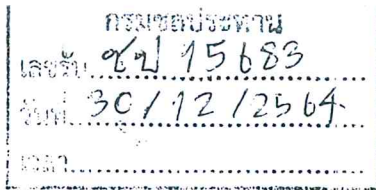 กรมชลประทาน
เลขรับ ชป 15683
วันที่ 30/12/2564
เวลา